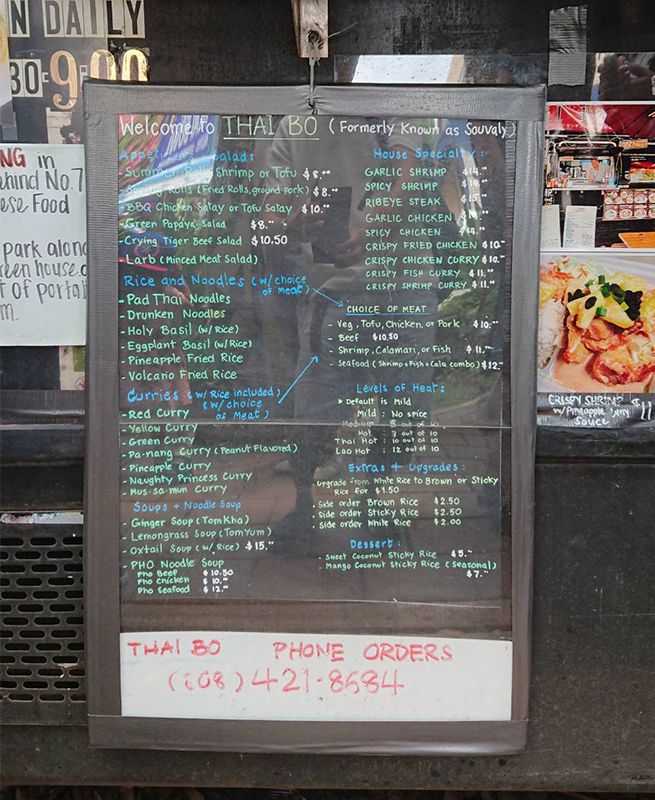 N DAILY
30-9:00
NG in
ehind No.7
ese Food
park along
reen house.
t of porta
m.
Welcome to THAI BO (Formerly Known as Souvaly)
Appetizers Salads:
Summer Rolls Shrimp or Tofu $8.00
Spring Rolls (Fried Rolls, ground Pork) $8.00
BBQ Chicken Satay or Tofu Satay $10.00
Green Papaya Salad $8.00
- Crying Tiger Beef Salad $10.50
- Larb (Minced Meat Salad)
Rice and Noodles (w/choice
of meat)
- Pad Thai Noodles
- Drunken Noodles
- Holy Basil (w/Rice)
- Eggplant Basil (w/Rice)
- Pineapple Fried Rice
- Volcano Fried Rice
Curries (w/Rice included)
(w/choice
of Meat)
- Red Curry
- Yellow Curry
- Green Curry
- Pa-nang Curry (Peanut Flavored)
- Pineapple Curry
- Naughty Princess Curry
- Mus-sa-mun Curry
Soups + Noodle Soup
- Ginger Soup (Tom Kha)
- Lemongrass Soup (Tom Yum)
- Oxtail Soup (w/Rice) $15.00
- PHO Noodle Soup
Pho Beef $10.50
Pho Chicken $10.00
Pho Seafood $12.00
House Specialty:
GARLIC SHRIMP $14.00
SPICY SHRIMP
RIBEYE STEAK
GARLIC CHICKEN
SPICY CHICKEN
CRISPY FRIED CHICKEN $10.00
CRISPY CHICKEN CURRY $10.00
CRISPY FISH CURRY $11.00
CRISPY SHRIMP CURRY $11.00
CHOICE OF MEAT
- Veg, Tofu, Chicken, or Pork $10.00
- Beef $10.50
- Shrimp, Calamari, or Fish $11.00
- Seafood (Shrimp + Fish + Cala combo) $12.00
Levels of Heat:
Default is Mild
Mild : No spice
Medium : 5 out of 10
Hot : 7 out of 10
Thai Hot : 10 out of 10
Lao Hot : 12 out of 10
Extras + Upgrades:
Upgrade from White Rice to Brown or Sticky
Rice for $1.50
. Side order Brown Rice $2.50
. Side order Sticky Rice $2.50
. Side order White Rice $2.00
Dessert:
- Sweet Coconut Sticky Rice $5.00
- Mango Coconut Sticky Rice (Seasonal)
$7.00
THAI BO PHONE ORDERS
(808) 421-8684
CRISPY SHRIMP
w/Pineapple Curry
Sauce
$11